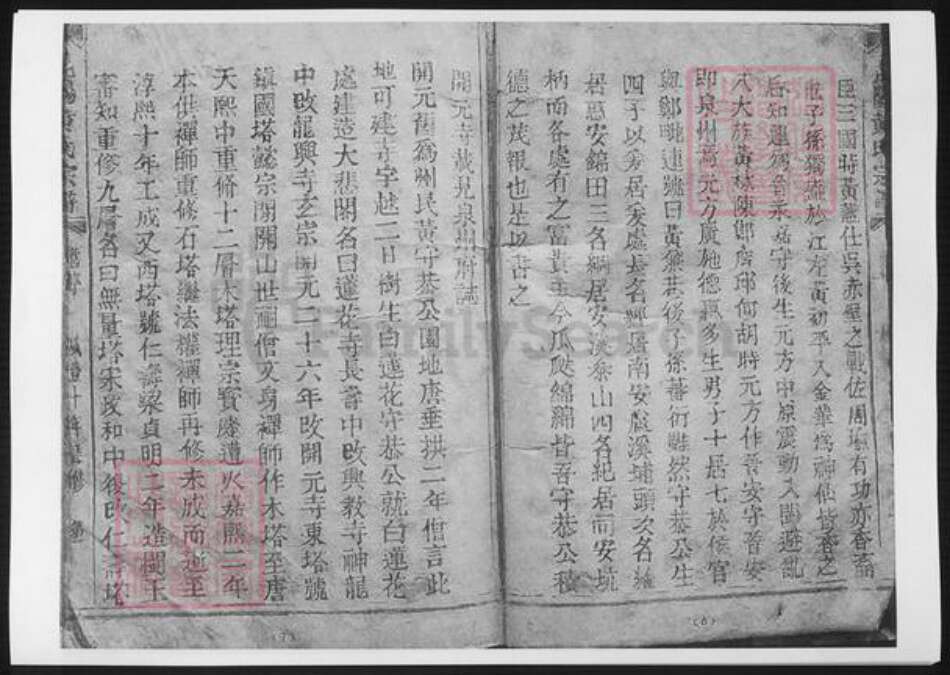 臣三國時黃蓋仕吳赤壁之戰佐周瑜有功亦香裔
也子孫猶蕃於江左黃初平入金華為神仙皆香之
后知運為晉永嘉守後生元方中原震動入閩避亂
八大族黃林陳鄭詹邱何胡時元方作晉安守晉安
即泉州焉元方廣施德惠多生男子十居七於侯官
與鄭
四子以
居惠安錦田三名綱居安溪泰山四名紀居而安坑
柄而各處有之富貴至今瓜瓞綿綿皆吾守恭公積
德之茂報也是以書之
開元寺載見泉州府誌
開元舊為州民黃守恭公園地唐垂拱二年僧言此
地可建寺字越二日樹生白蓮花守恭公就白蓮花
處建造大悲閣名曰蓮花寺長壽中改興教寺神龍
中改龍興寺玄宗開元二十六年改開元寺東塔號
鎮國塔懿宗朝開山世嗣僧文身禪師作木塔至唐
天熙中重修十二層木塔理宗寶慶遭火嘉熙二年
本供禪師重修石塔繼法權禪師再修未成而逝至
淳熙十年工成又西塔號仁壽梁貞明二年造閩王
審知重修九層名曰無量塔宋政和中後改仁壽塔
(7)
(6)
FamilySearch